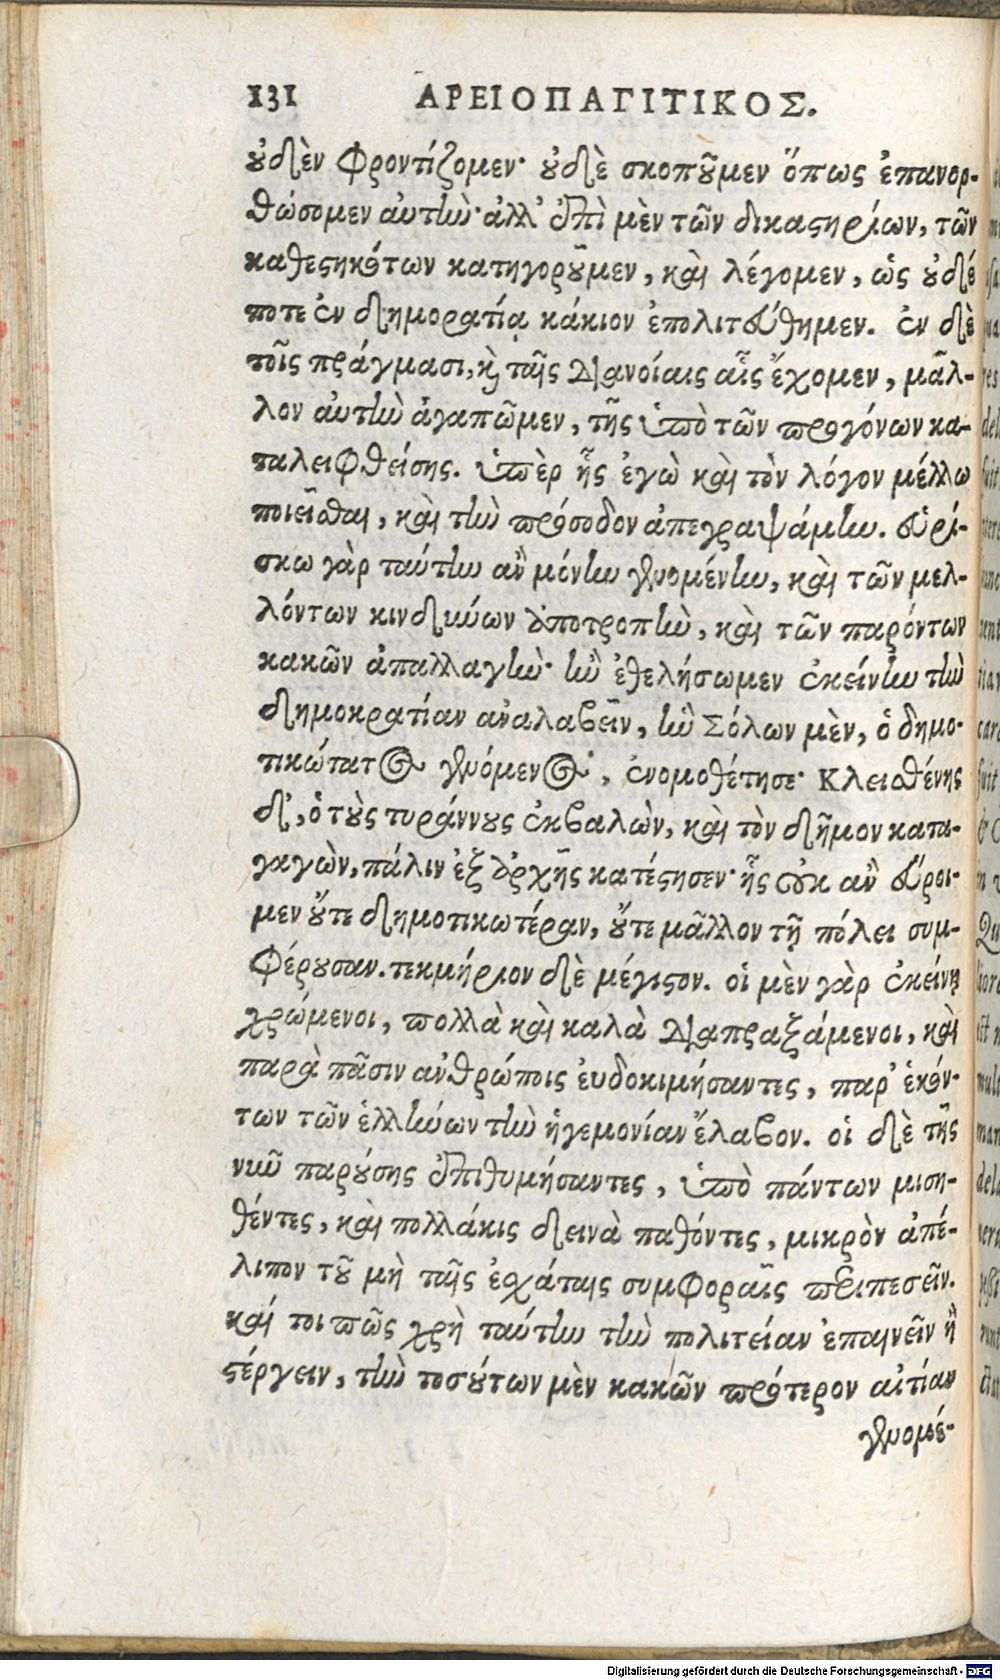 131 ΑΡΕΙΟΠΑΓΙΤΙΚΟΣ.
οὐδὲν φροντίζομεν· οὐδὲ σκοποῦμεν ὅπως ἐπανορ-
θώσομεν αὐτὴν· ἀλλ' ἐπὶ μὲν τῶν δικαστηρίων, τῶν
καθεστηκότων κατηγοροῦμεν, καὶ λέγομεν, ὡς οὐδέ
ποτε ἐν δημορατίᾳ κάκιον ἐπολιτεύθημεν. ἐν δὲ
τοῖς πράγμασι, καὶ ταῖς διανοίαις αἷς ἔχομεν, μᾶλ-
λον αὐτὴν ἀγαπῶμεν, τῆς ὑπὸ τῶν προγόνων κα-
ταλειφθείσης. ὑπὲρ ἧς ἐγὼ καὶ τὸν λόγον μέλλω
ποιεῖσθαι, καὶ τὴν πρόσοδον ἀπεγραψάμην. εὑρί-
σκω γὰρ ταύτην ἂν μόνην γενομένην, καὶ τῶν μελ-
λόντων κινδύνων ἀποτροπὴν, καὶ τῶν παρόντων
κακῶν ἀπαλλαγὴν· ἢν ἐθελήσωμεν ἐκείνην τὴν
δημοκρατίαν ἀναλαβεῖν, ἣν Σόλων μὲν, ὁ δημο-
τικώτατος γενόμενος, ἐνομοθέτησε· Κλεισθένης
δ', ὁ τοὺς τυράννους ἐκβαλὼν, καὶ τὸν δῆμον κατα-
γαγὼν, πάλιν ἐξ ἀρχῆς κατέστησεν· ἧς οὐκ ἂν εὕροι-
μεν οὔτε δημοτικωτέραν, οὔτε μᾶλλον τῇ πόλει συμ-
φέρουσαν. τεκμήριον δὲ μέγιστον. οἱ μὲν γὰρ ἐκείνῃ
χρώμενοι, πολλὰ καὶ καλὰ διαπραξάμενοι, καὶ
παρὰ πᾶσιν ἀνθρώποις εὐδοκιμήσαντες, παρ' ἑκόν-
των τῶν ἑλλήνων τὴν ἡγεμονίαν ἔλαβον. οἱ δὲ τῆς
νῦν παρούσης ἐπιθυμήσαντες, ὑπὸ πάντων μιση-
θέντες, καὶ πολλάκις δεινὰ παθόντες, μικρὸν ἀπέ-
λιπον τοῦ μὴ ταῖς ἐσχάταις συμφοραῖς περιπεσεῖν.
καί τοι πῶς χρὴ ταύτην τὴν πολιτείαν ἐπαινεῖν ἢ
στέργειν, τὴν τοσούτων μὲν κακῶν πρότερον αἰτίαν
γενομέ-
Digitalisierung gefördert durch die Deutsche Forschungsgemeinschaft - DFG